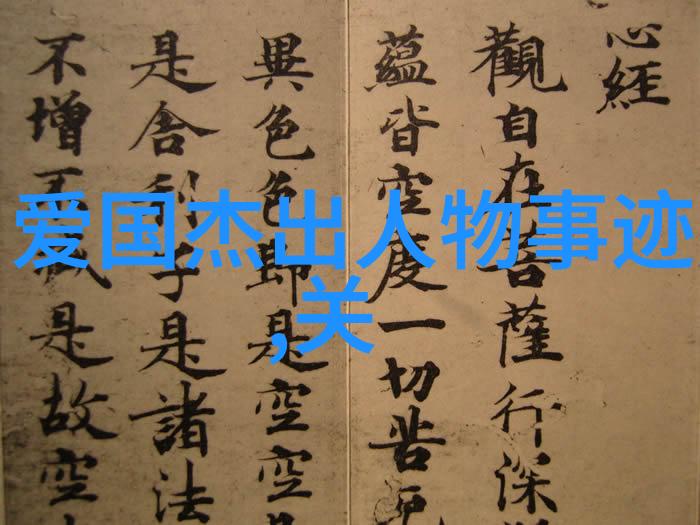 心經
觀自在菩薩行深
蘊皆空度一切苦厄
異色色即是空空
是舍利子是諸法
不增不減是故空
爱国杰出人物事迹
,关